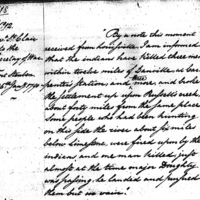 18.
1792.
St Clair
to the
Secretary of War
Fort Steuben
"By a note this moment
received from Louisville I am informed
that the indians have killed three men
within twelve miles of Danville, at Car-
penters station, and three broke
the settlement up upon Russells creek,
about forty miles from the same place
Some people who had been hunting
on this side the river about six miles
below limestone, were fired upon by the
indians and one man killed just
almost at the time major Doughty
was passing, he landed and pursued
them but in vain."